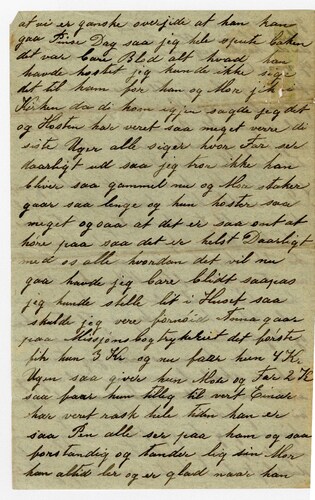 at vi er ganske overgide at han kan
gaa Pinse Dag saa jeg hele spute Caken
det var Care Blod alt hvad han
havde hostet jeg kunde ikke sige
det til ham for han og Mor gik i
Kirken da de kom igjen sagde jeg det
og Hosten har veret saa meget verre de
siste Uger alle siger hvor Far ser
daarligt ud saa jeg tror ikke han
bliver saa gammel nu og Mor staker
gaar saa lenge og hun hoster saa
meget ogsaa at det er saa ont at
höre paa saa det er helst Daarligt
med os alle hvordan det vil nu
gaa havde jeg Care blidt saapas
jeg kunde stelle lit i Huset saa
skulde jeg vere fornöid Anna gaar
paa Missjons Bogtrykkeriet det förste
fik hun 3 Kr og nu faar hun 4 Kr
Ugen saa giver hun Mor og Far 2 Kr
saa faar hun tilleg til vort Einar
har veret rask hele tiden han er
saa Pen alle ser paa ham og saa
forstandig og tander lig sin Mor
han altid ler og er glad naar han